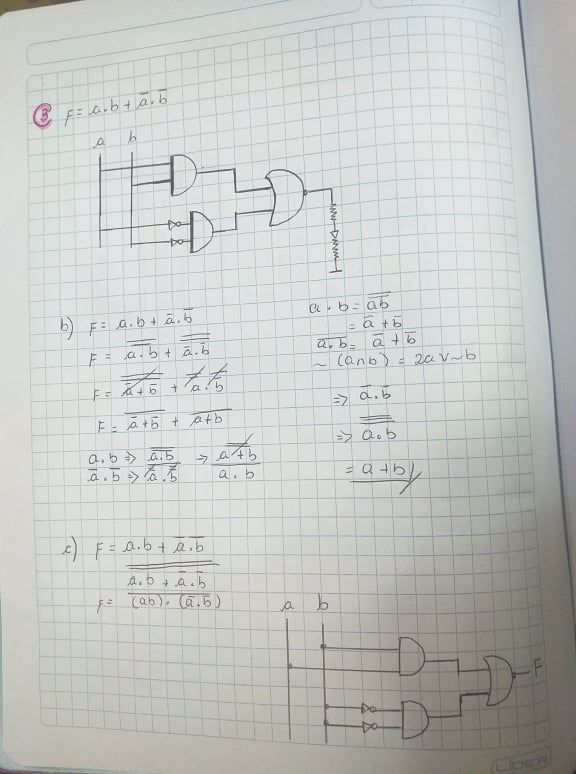 3 F = a.b + a̅.b̅
a b
b) F = a.b + a̅.b̅
F = \overline{\overline{a.b}} + \overline{\overline{a̅.b̅}}
F = \overline{a̅+b̅} + \overline{\overline{a̅.b̅}}
F = \overline{a̅+b̅} + \overline{a+b}
a.b => \overline{\overline{a.b}} => \overline{a+b}
a̅.b̅ => \overline{\overline{a̅.b̅}} a.b
a.b = \overline{\overline{ab}}
= a̅+b̅
\overline{a.b} = a̅+b̅
~(a∩b) = 2a∨~b
=> a̅.b̅
=> \overline{\overline{a.b}}
= a+b//
c) F = a.b + a̅.b̅
\overline{\overline{a.b + a̅.b̅}}
F = \overline{(ab).(a̅.b̅)}
a b
F
LIDER